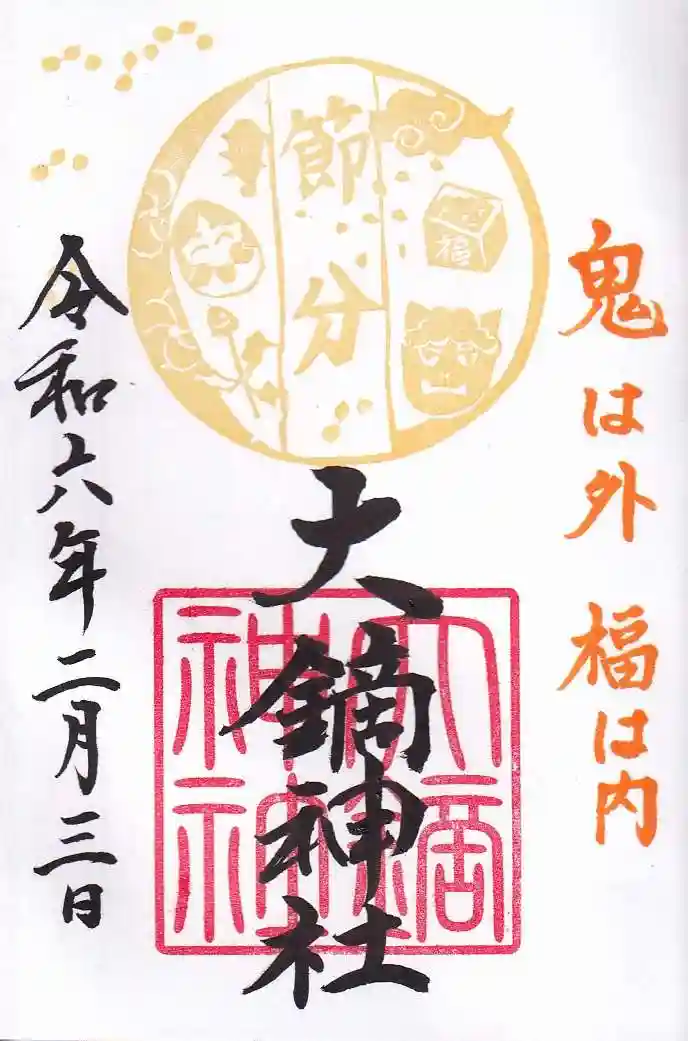 鬼は外 福は内
節分
福
大鏑神社
大鏑神社
令和六年二月三日